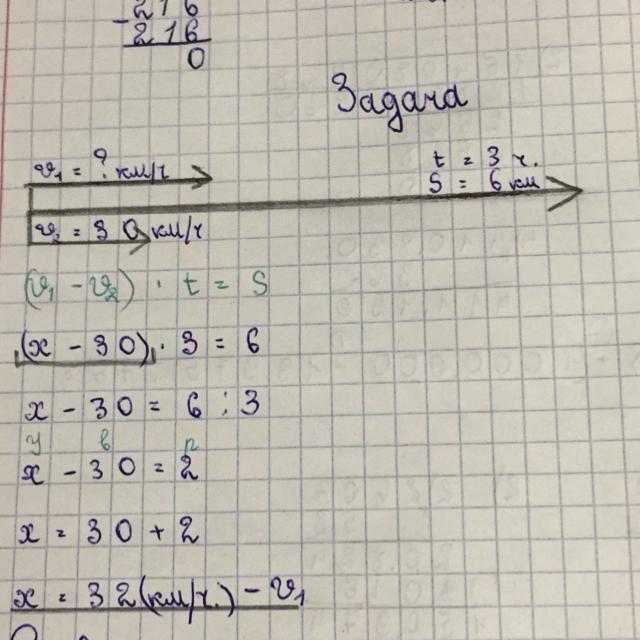 216
- 216
0
Задача
v₁ = ? км/ч
t = 3 ч.
S = 6 км
v₂ = 30 км/ч
(v₁ - v₂) · t = S
(x - 30) · 3 = 6
x - 30 = 6 : 3
у в р
x - 30 = 2
x = 30 + 2
x = 32 (км/ч.) - v₁